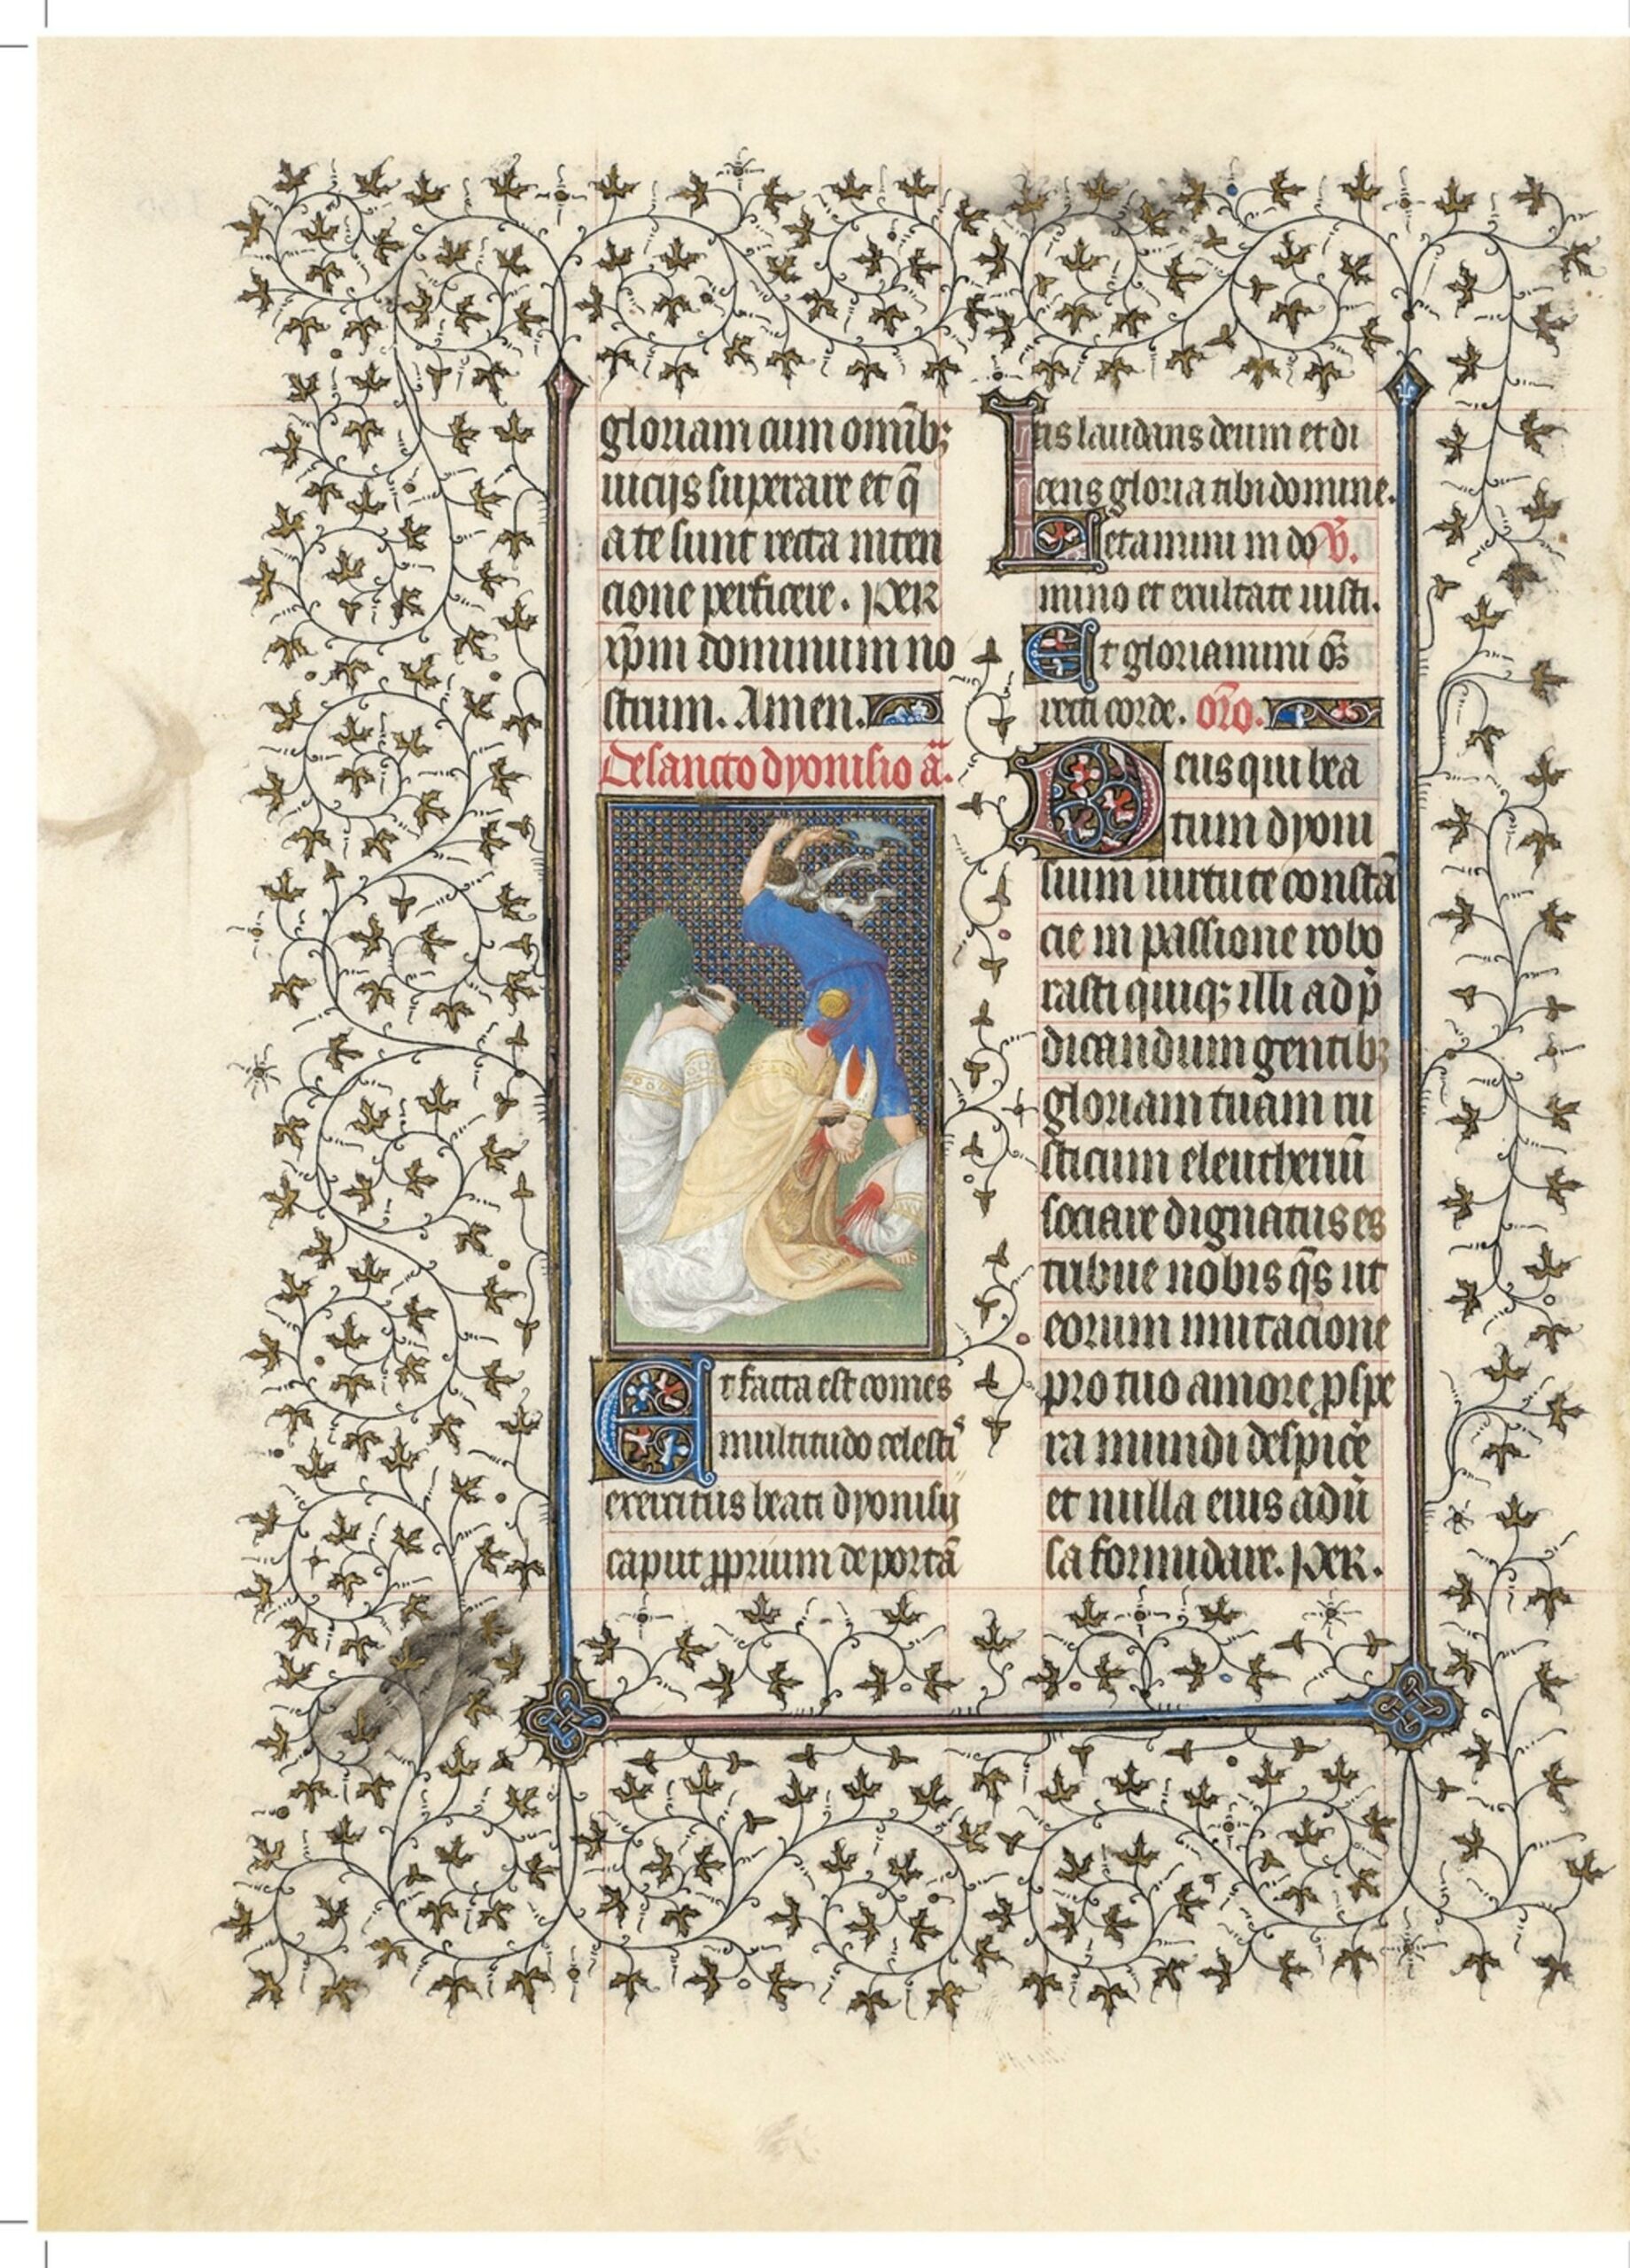 gloriam cum om̄ib;
uicijs superare et q̄
a te sunt recta inten
cione perficere. per
xp̄m dominum no
strum. Amen.
De sancto dyonisio ā.
Et facta est comes
multitudo celestis
exercitus beati dyonisij
caput ꝓprium deportā
tis laudans deum et di
cens gloria tibi domine.
Letamini in do V̄.
mino et exultate iusti.
Et gloriamini oēs
recti corde. or̄o.
Deus qui bea
tum dyoni
sium uirtute constā
cie in passione robo
rasti quiq; illi ad p̄
dicandum gentib;
gloriam tuam ru
sticum eleutheriū
sociare dignatus es
tribue nobis q̄s ut
eorum imitacione
pro tuo amore ꝓspe
ra mundi despicē
et nulla eius adū
sa formidare. per.